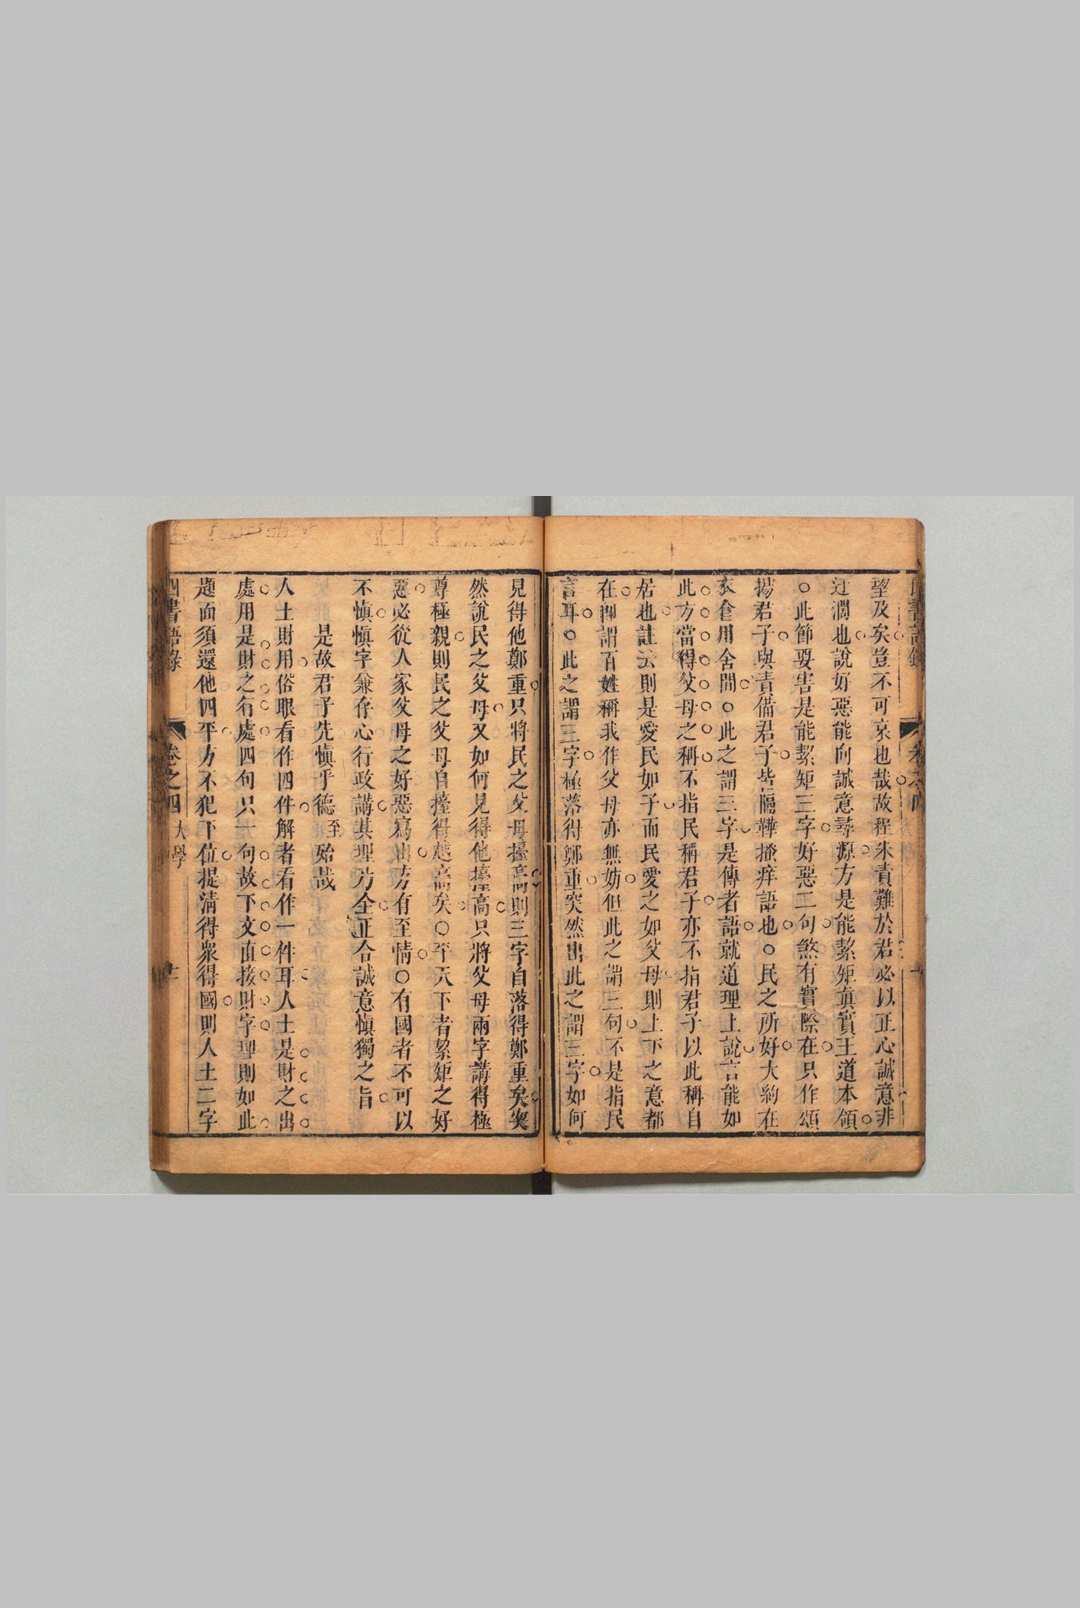 望及矣豈不可哀也哉故程朱責難於君必以正心誠意非
迂濶也說好惡能向誠意尋源方是能絜矩真實王道本領
○此節要害是能絜矩三字好惡二句煞有實際在只作頌
揚君子與責備君子皆隔鞾搔痒語也○民之所好大約在
衣食用舍間○此之謂三字是傳者語就道理上說言能如
此方當得父母之稱不指民稱君子亦不指君子以此稱自
居也註云則是愛民如子而民愛之如父母則上下之意都
在內謂百姓稱我作父母亦無妨但此之謂三句不是指民
言耳○此之謂三字極落得鄭重突然出此之謂三字如何
見得他鄭重只將民之父母擡高則三字自落得鄭重矣
然說民之父母又如何見得他擡高只將父母兩字講得極
尊極親則民之父母自擡得越高矣○平天下者絜矩之好
惡必從人家父母之好惡寫出方有至情○有國者不可以
不慎慎字兼存心行政講其理方全正合誠意慎獨之旨
是故君子先慎乎德至始哉
人土財用俗眼看作四件解者看作一件耳人土是財之出
處用是財之行處四句只一句故下文直接財字理則如此
題面須還他四平方不犯下位提清得眾得國則人土二字
四書語錄 卷之四 大學